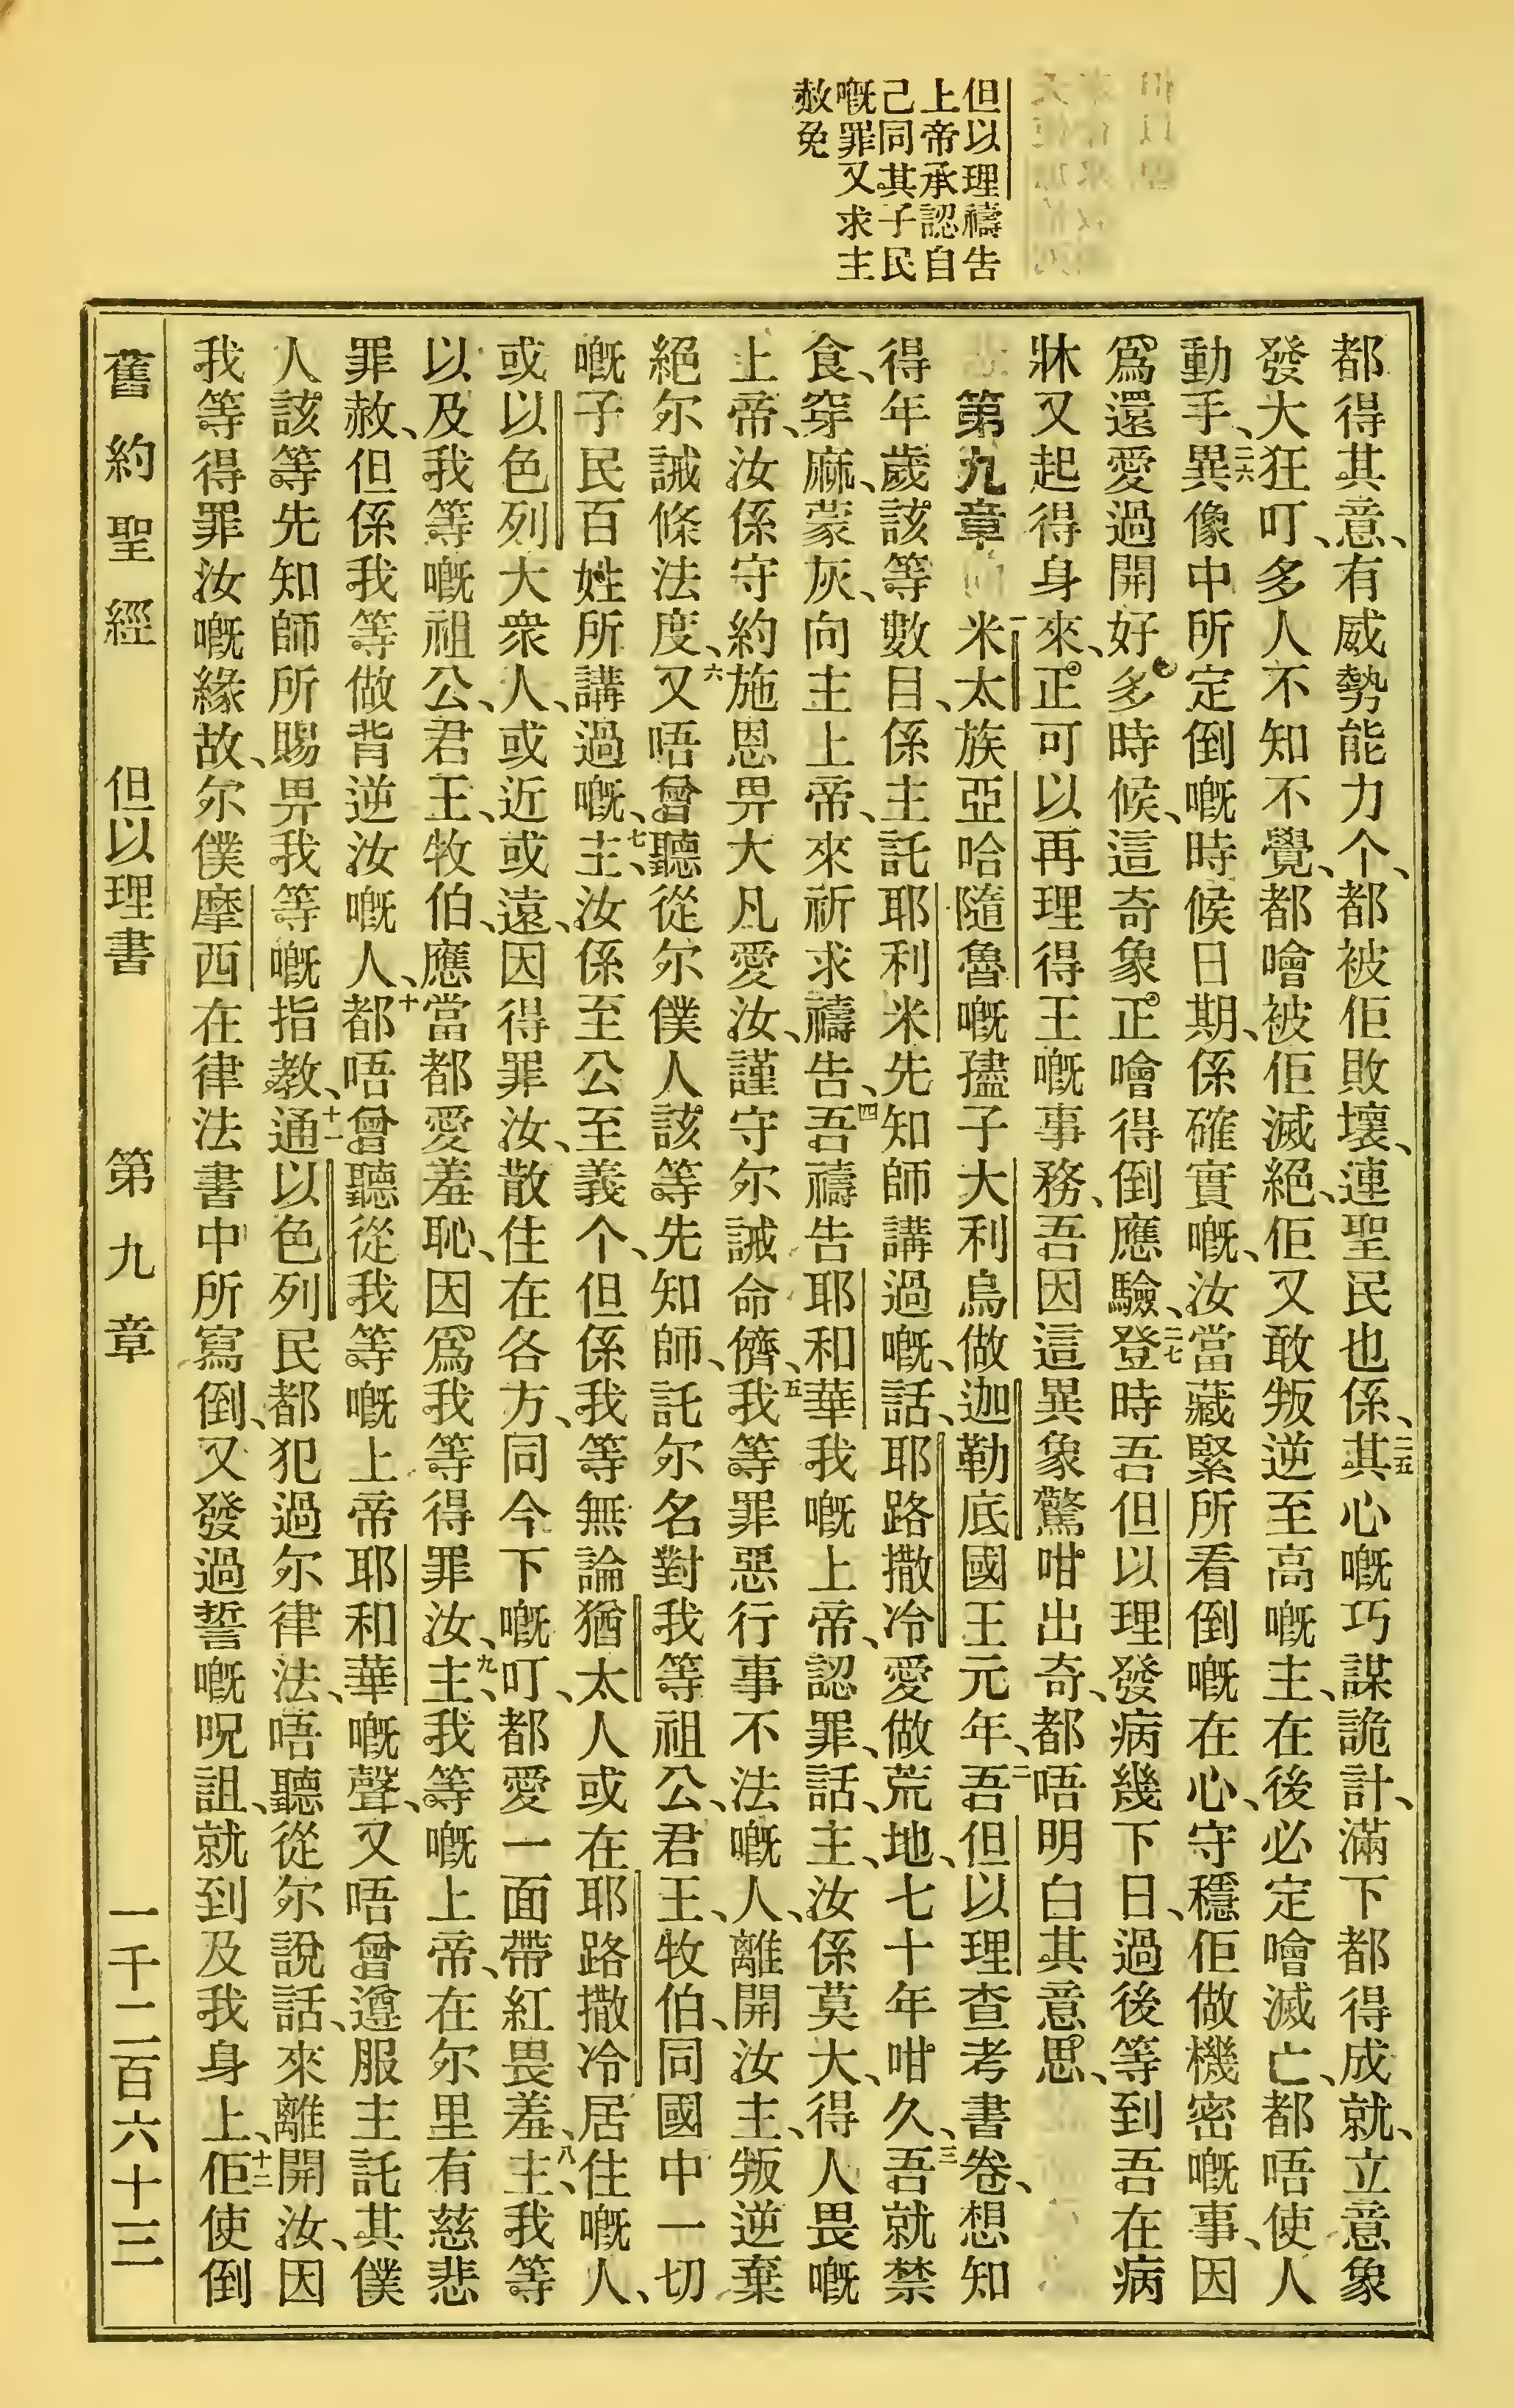 但以理禱告
上帝承認自
己同其子民
嘅罪又求主
赦免
都得其意、有威勢能力个、都被佢敗壞、連聖民也係、二五其心嘅巧謀詭計、滿下都得成就、立意象
發大狂叮、多人不知不覺、都噲被佢滅絕、佢又敢叛逆至高嘅主、在後必定噲滅亡、都唔使人
動手、二六異像中所定倒嘅時候日期、係確實嘅、汝當藏緊所看倒嘅在心、守穩佢做機密嘅事、因
爲還愛過開好多時候、這奇象正噲得倒應驗、二七登時吾但以理發病幾下日、過後等到吾在病
牀又起得身來、正可以再理得王嘅事務、吾因這異象驚咁出奇、都唔明白其意思、
第九章 一米太族亞哈隨魯嘅孻子大利烏做迦勒底國王元年、二吾但以理查考書卷、想知
得年歲該等數目、係主託耶利米先知師講過嘅話、耶路撒冷愛做荒地、七十年咁久、三吾就禁
食、穿麻、蒙灰、向主上帝、來祈求禱告、四吾禱告耶和華我嘅上帝、認罪、話、主、汝係莫大、得人畏嘅
上帝、汝係守約施恩畀大凡愛汝、謹守尔誡命儕、五我等罪惡行事不法嘅人、離開汝主、叛逆棄
絕尔誡條法度、六又唔曾聽從尔僕人該等先知師、託尔名對我等祖公、君王、牧伯、同國中一切
嘅子民百姓所講過嘅、七主、汝係至公至義个、但係我等無論猶太人或在耶路撒冷居住嘅人、
或以色列大衆人、或近或遠、因得罪汝、散佳在各方、同今下嘅叮、都愛一面帶紅畏羞、八主、我等
以及我等嘅祖公、君王、牧伯、應當都愛羞恥、因爲我等得罪汝、九主、我等嘅上帝、在尔里有慈悲
罪赦、但係我等做背逆汝嘅人、十都唔曾聽從我等嘅上帝耶和華嘅聲、又唔曾遵服主託其僕
人該等先知師所賜畀我等嘅指教、十一通以色列民都犯過尔律法、唔聽從尔說話、來離開汝、因
我等得罪汝嘅緣故、尔僕摩西在律法書中所寫倒、又發過誓嘅呪詛、就到及我身上、十二佢使倒
舊約聖經 但以理書 第九章 一千二百六十三